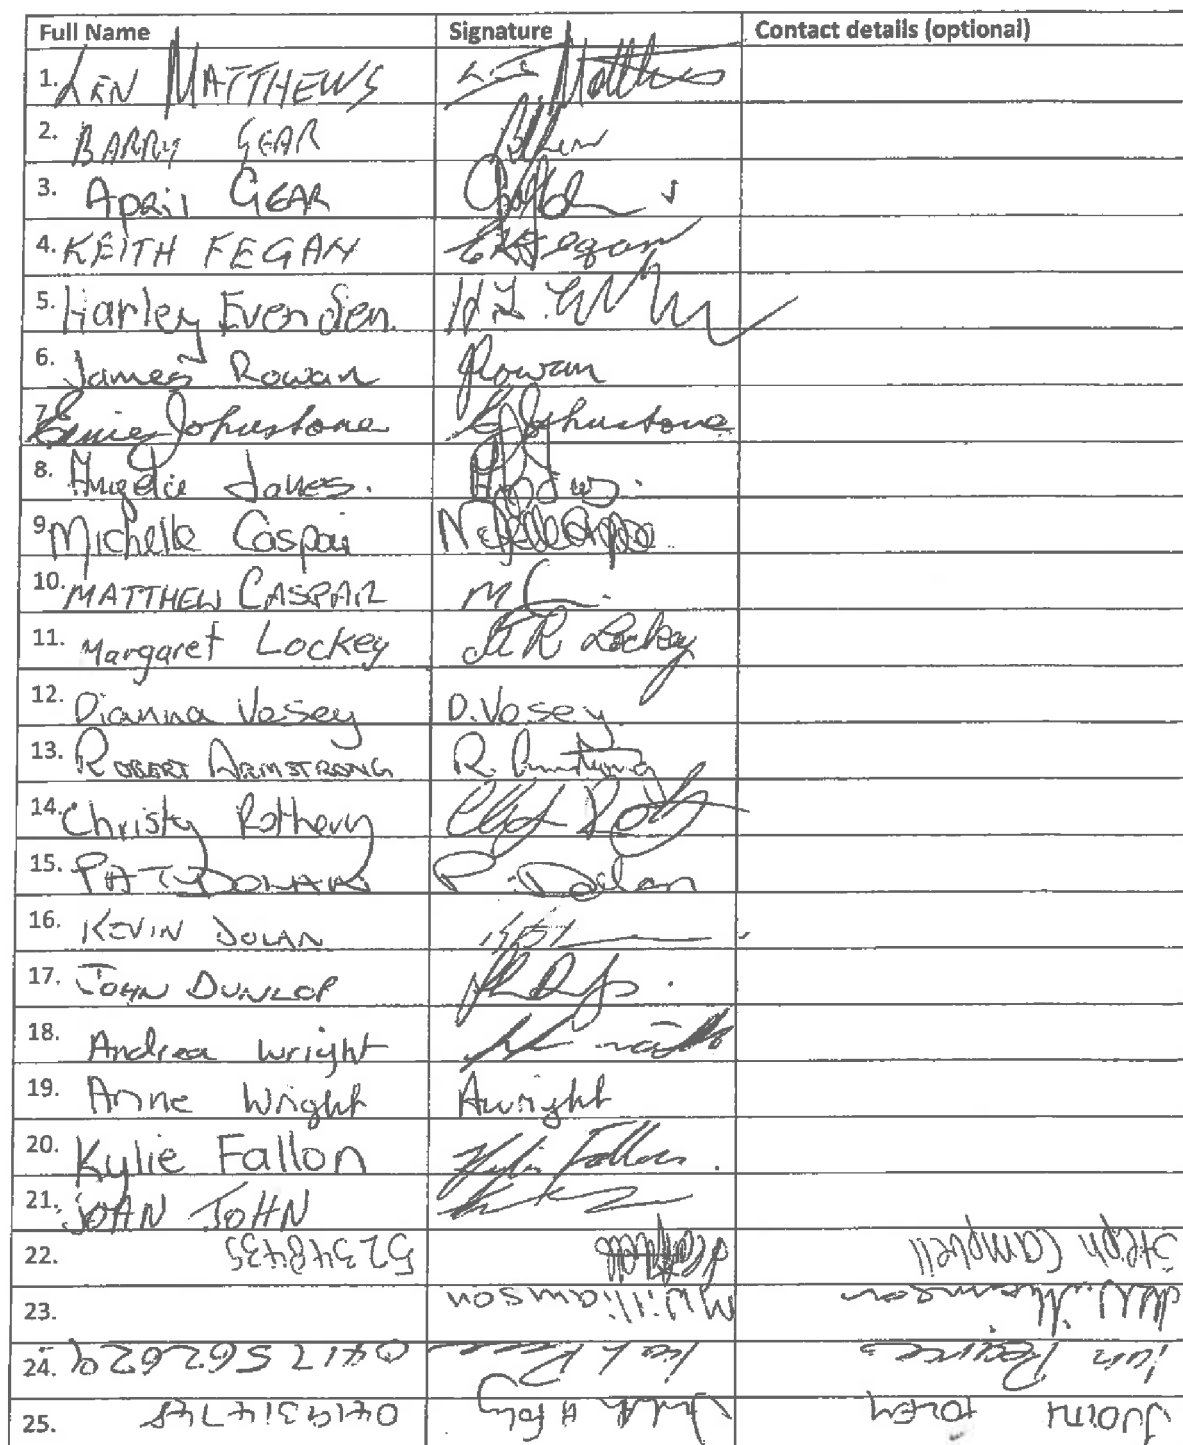 Full Name Signature Contact details (optional)
1. LEN MATTHEWS Matthews
2. BARRY GEAR
3. April GEAR
4. KEITH FEGAN Fegan
5. Harley Evenden.
6. James Rowan JRowan
7. Ernie Johnstone E Johnstone
8. Angelie James.
9 Michelle Caspar
10. MATTHEW CASPAR MC.
11. Margaret Lockey R Lockey
12. Dianna Vosey D. Vosey
13. ROBERT ARMSTRONG R. Armstrong
14. Christy Rothery
15. PAT DOLAN P. Dolan
16. KEVIN DOLAN
17. JOHN DUNLOP
18. Andrea Wright
19. Anne Wright AWright
20. Kylie Fallon Kylie Fallon.
21. JOAN JOHN
22. 52348435 Steph Campbell
23. MWilliamson Williamson
24. 0417562629 Ian Peirce
25. 0419314748 Judith A Foley JUDITH FOLEY